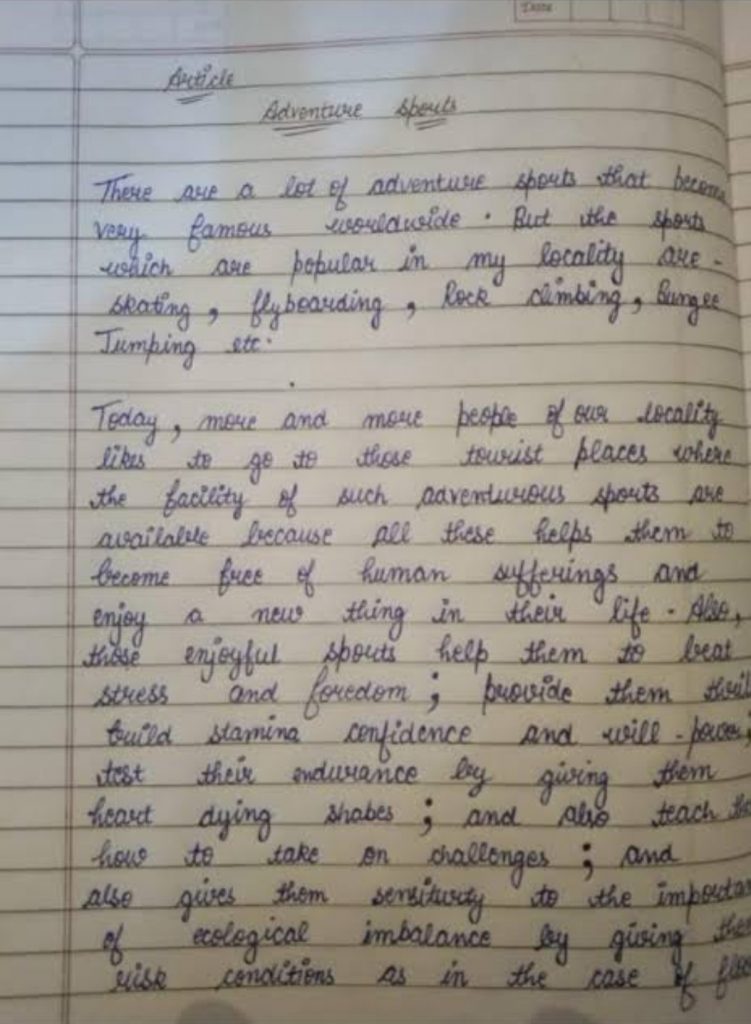 Date
Article
Adventure Sports
There are a lot of adventure sports that become
very famous worldwide. But the sports
which are popular in my locality are -
skating, flyboarding, Rock climbing, Bungee
Jumping etc.
Today, more and more people of our locality
likes to go to those tourist places where
the facility of such adventurous sports are
available because all these helps them to
become free of human sufferings and
enjoy a new thing in their life. Also,
those enjoyful sports help them to beat
stress and foredom; provide them thrill
build stamina confidence and will-power;
test their endurance by giving them
heart dying shabes; and also teach
how to take on challenges; and
also gives them sensitivity to the
of ecological imbalance by giving
risk conditions as in the case of